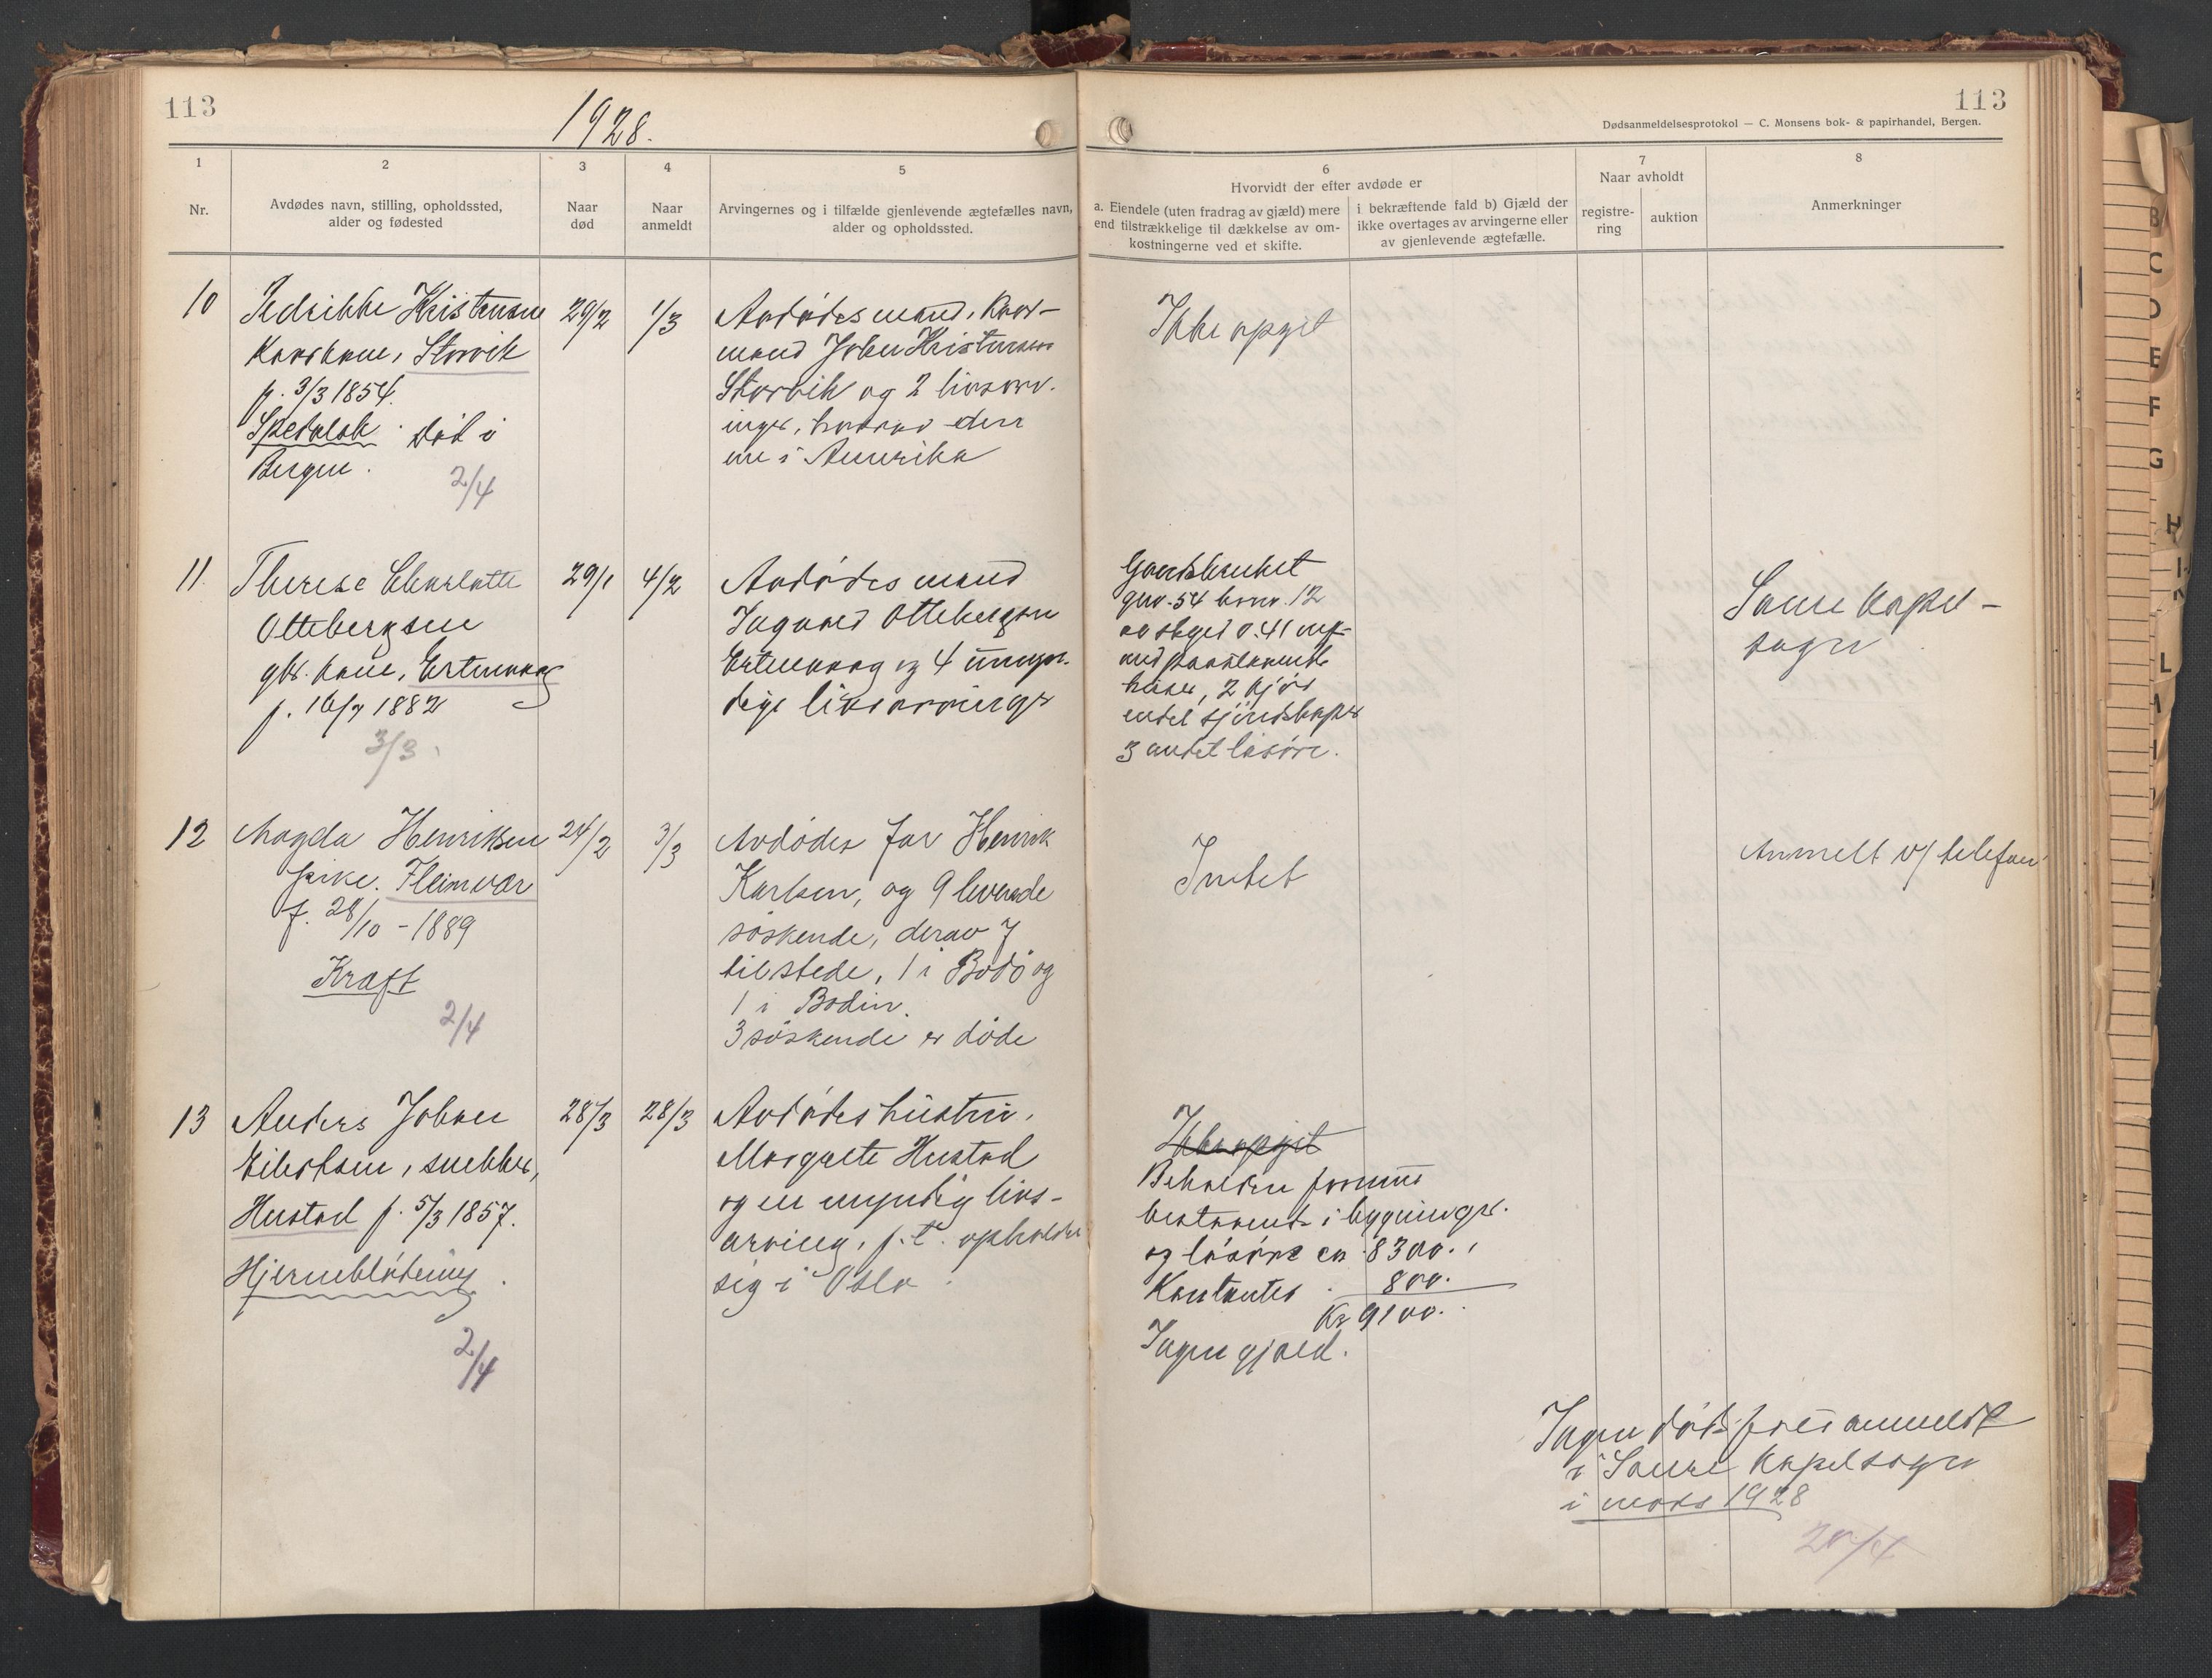 113
1928.
1
2
3
4
5
Nr.
Avdødes navn, stilling, opholdssted,
alder og fødested
Naar
død
Naar
anmeldt
Arvingernes og i tilfælde gjenlevende ægtefælles navn,
alder og opholdssted.
113
Dødsanmeldelsesprotokol — C. Monsens bok- & papirhandel, Bergen.
6
Hvorvidt der efter avdøde er
a. Eiendele (uten fradrag av gjæld) mere
end tilstrækkelige til dækkelse av om-
kostningerne ved et skifte.
i bekræftende fald b) Gjæld der
ikke overtages av arvingerne eller
av gjenlevende ægtefælle.
7
Naar avholdt
registre-
ring
auktion
8
Anmerkninger
10
Fedrikke Kristensen
Kaarkone, Storvik
f. 3/3 1854.
Spedalsk. Död i
Bergen.
2/4
29/2
1/3
Avdödes mand, Kaar-
mand Johan Kristensen
Storvik og 2 livsarv.
inger, hvorav den
ene i Amerika
Ikke opgit
11.
Therese Charlotte
Ottebergsen
gbr. kone, Ertenvaag
f. 16/7 1882
3/3.
29/1
4/2
Avdödes mand
Ingvard Ottebergsen
Ertenvaag og 4 umyn-
dige livsarvinger
Gaardsbruket
gnr. 54 brnr. 12
av skyld 0.41 mrk
med paastaaende
huser, 2 kjör
endel sjöredskaper
& andet lösöre.
Sörre kapel-
sogn
12
Magda Henriksen
pike. Fleinvær
f. 28/10 - 1889
Kræft
2/4
24/2
3/3
Avdödes far Henrik
Karlsen, og 9 levende
söskende, derav 7
tilstede, 1 i Bodö og
1 i Bodin.
3 söskende er döde
Intet
Anmelt v/ telefon
13
Anders Johan
Eilertsen, snekker,
Hustad f. 5/3 1857.
Hjerneblödning.
2/4
28/3
28/3
Avdödes hustru,
Margrete Hustad
og en myndig livs-
arving, p.t. opholder
sig i Oslo.
Ikke opgit
Beholden formue
bestaaende i bygninger.
og lösöre ca 8300.,
Kontanter . 800.
Kr 9100.
Ingen gjæld.
Ingen dödsfald anmeldt
i Sörre kapelsogn
i mars 1928
20/4